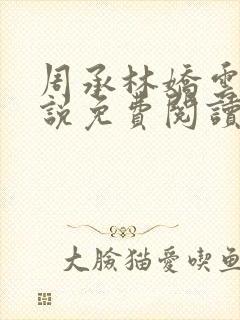 周承林嬌雲
說免費閱讀
大臉猫愛喫鱼